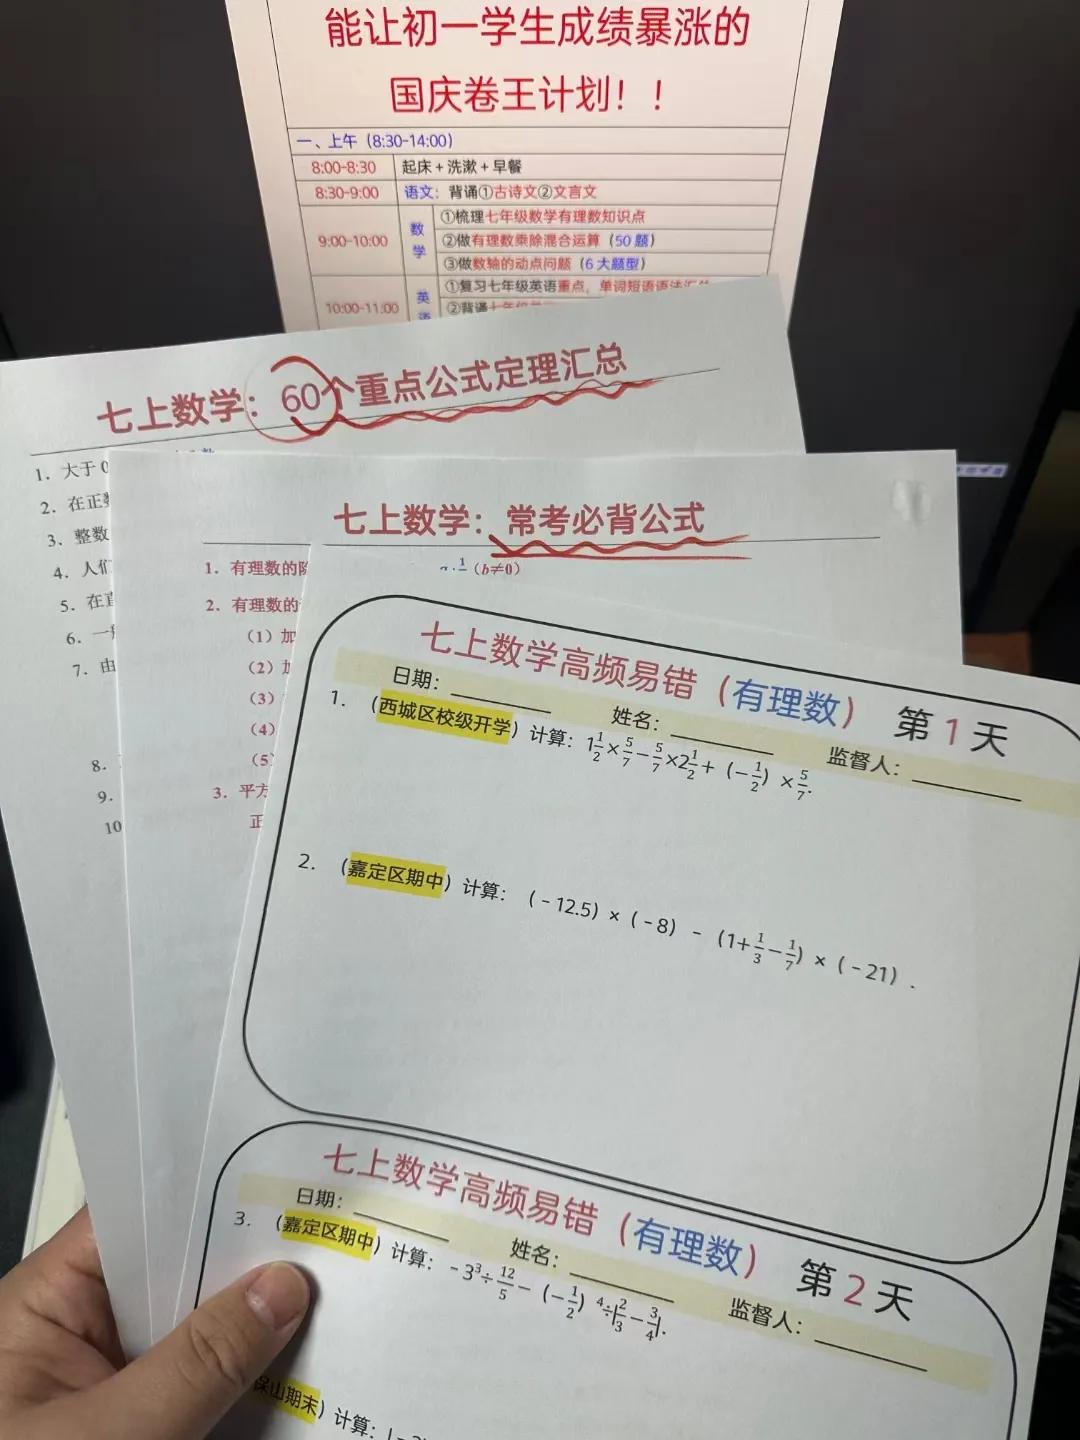 能让初一学生成绩暴涨的
国庆卷王计划！！
一、上午（8:30-14:00）
8:00-8:30 起床+洗漱+早餐
8:30-9:00 语文：背诵①古诗文②文言文
9:00-10:00 数学 ①梳理七年级数学有理数知识点
②做有理数乘除混合运算（50题）
③做数轴的动点问题（6大题型）
10:00-11:00 英语 ①复习七年级英语重点，单词短语语法汇总
②背诵七年级
七上数学：60个重点公式定理汇总
1. 大于0
2. 在正数
3. 整数
4. 人们
5. 在直
6. 一般
7. 由
8.
9.
10
七上数学：常考必背公式
1. 有理数的除
(b≠0)
2. 有理数的
（1）加
（2）加
（3）
（4）
（5）
3. 平方
正
七上数学高频易错（有理数） 第1天
日期：______ 姓名：______ 监督人：______
1.（西城区校级开学）计算：1½×5/7−5/7×2½+（−½）×5/7.
2.（嘉定区期中）计算：（−12.5）×（−8）−（1+1/3−1/7）×（−21）.
七上数学高频易错（有理数） 第2天
日期：______ 姓名：______ 监督人：______
3.（嘉定区期中）计算：−3³÷12/5−（−½）⁴÷|2/3−3/4|.
山期末）计算：